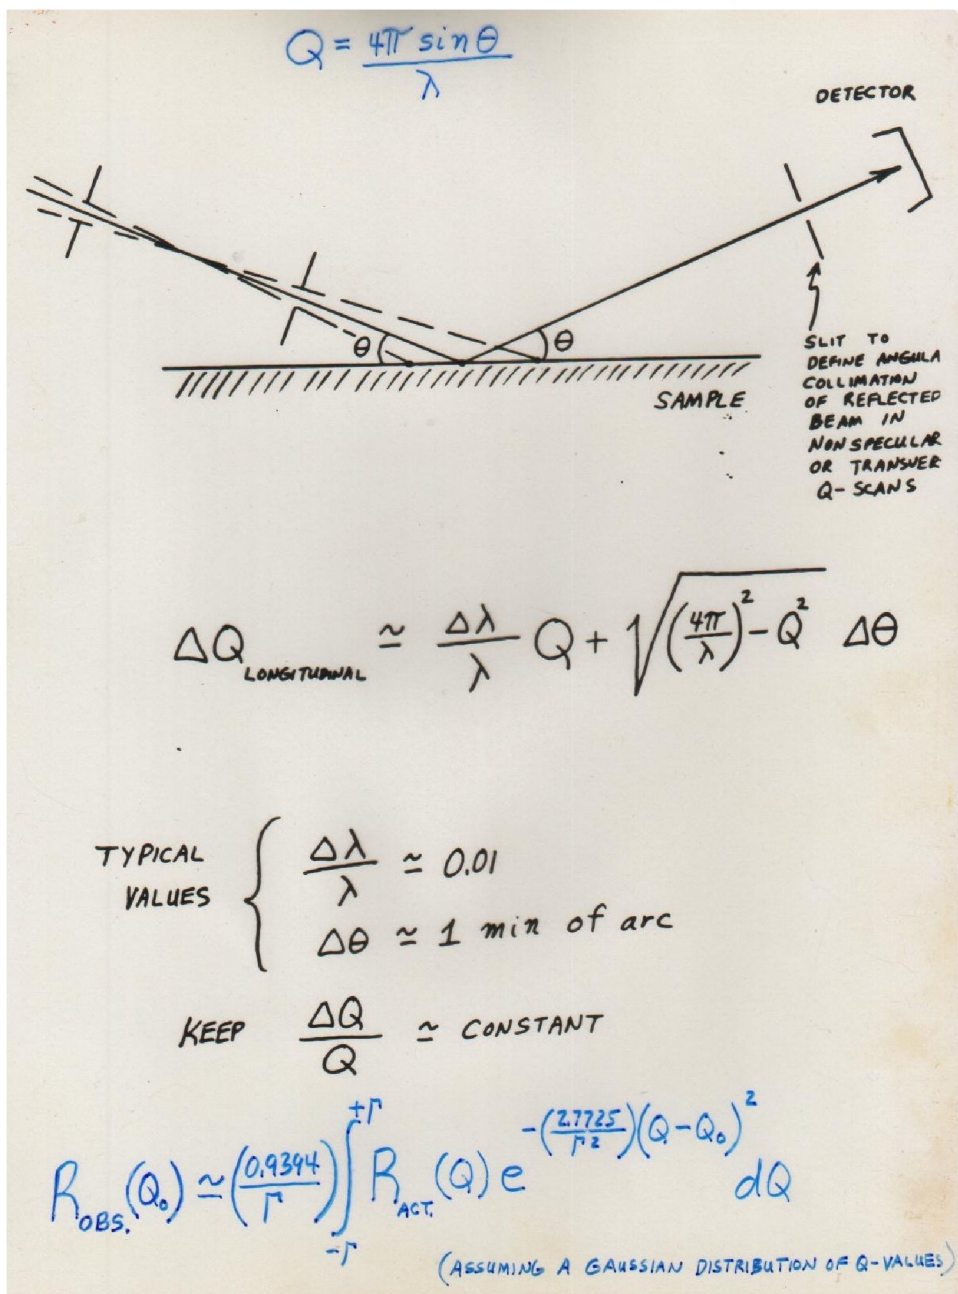 Q = 4π sin θ / λ
DETECTOR
θ
θ
SAMPLE
SLIT TO
DEFINE ANGULA
COLLIMATION
OF REFLECTED
BEAM IN
NONSPECULAR
OR TRANSVER
Q-SCANS
ΔQ LONGITUDINAL ≃ Δλ/λ Q + √((4π/λ)² - Q²) Δθ
TYPICAL
VALUES
Δλ/λ ≃ 0.01
Δθ ≃ 1 min of arc
KEEP ΔQ/Q ≃ CONSTANT
R_OBS.(Q₀) ≃ (0.9394/Γ) ∫_{-Γ}^{+Γ} R_ACT.(Q) e^{-(2.7725/Γ²)(Q-Q₀)²} dQ
(ASSUMING A GAUSSIAN DISTRIBUTION OF Q-VALUES)